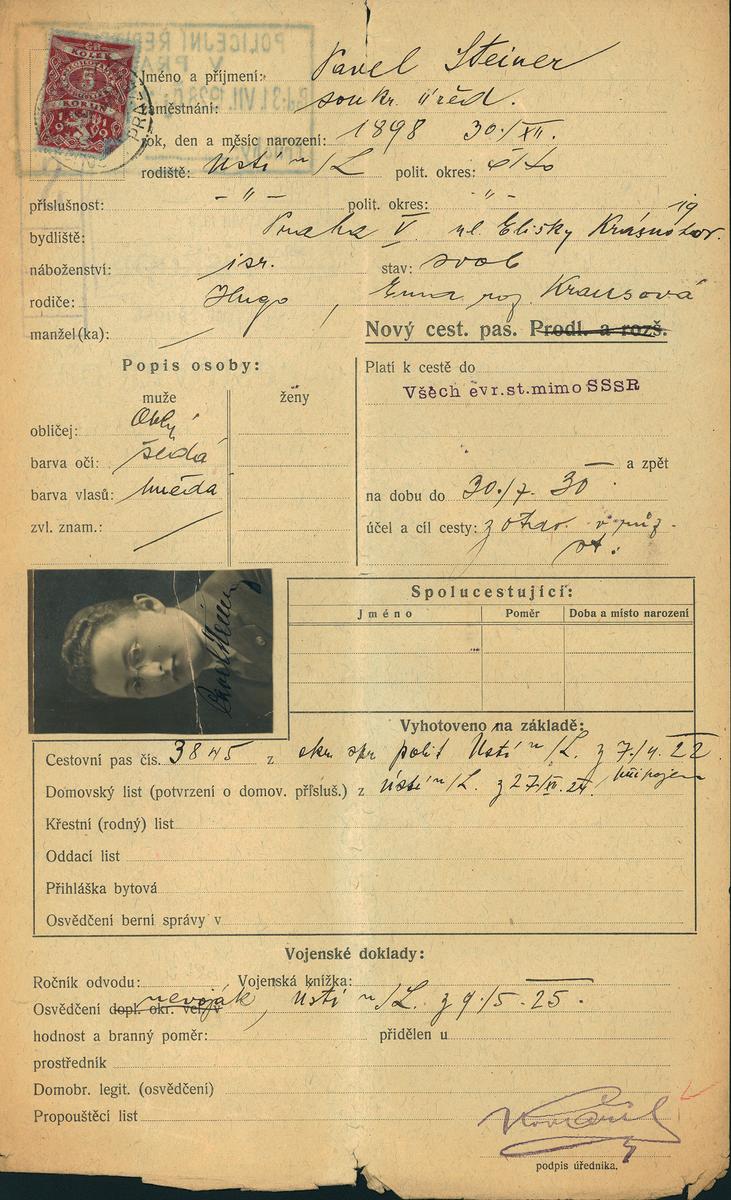 KOLEK
5
KORUN
1919
Jméno a příjmení: Pavel Steiner
zaměstnání: soukr. úřed.
rok, den a měsíc narození: 1898 30./XII.
rodiště: Ústí n/L polit. okres: dto
příslušnost: -"- polit. okres: -"-
19
bydliště: Praha V. ul. Elišky Krásnohor.
náboženství: isr. stav: svob
rodiče: Hugo, Emma roz. Krausová
manžel(ka):
Nový cest. pas. Prodl. a rozš.
Popis osoby:
muže ženy
obličej: Oblý
barva očí: šedá
barva vlasů: hnědá
zvl. znam.:
Platí k cestě do
Všech evr.st.mimo SSSR
a zpět
na dobu do 30./7. 30.
účel a cíl cesty: zotav. v růz.
st.
Pavel Steiner
Spolucestující:
Jméno Poměr Doba a místo narození
Vyhotoveno na základě:
Cestovní pas čís. 3845 z okr. spr. polit Ústí n/L. z 7./4. 22
Domovský list (potvrzení o domov. přísluš.) z Ústí n/L. z 27/XI. 24.
Křestní (rodný) list
Oddací list
Přihláška bytová
Osvědčení berní správy v
Vojenské doklady:
Ročník odvodu: Vojenská knížka:
Osvědčení dopl. okr. vel. v nevoják, Ústí n/L. z 9./5. 25.
hodnost a branný poměr: přidělen u
prostředník
Domobr. legit. (osvědčení)
Propouštěcí list
podpis úředníka.